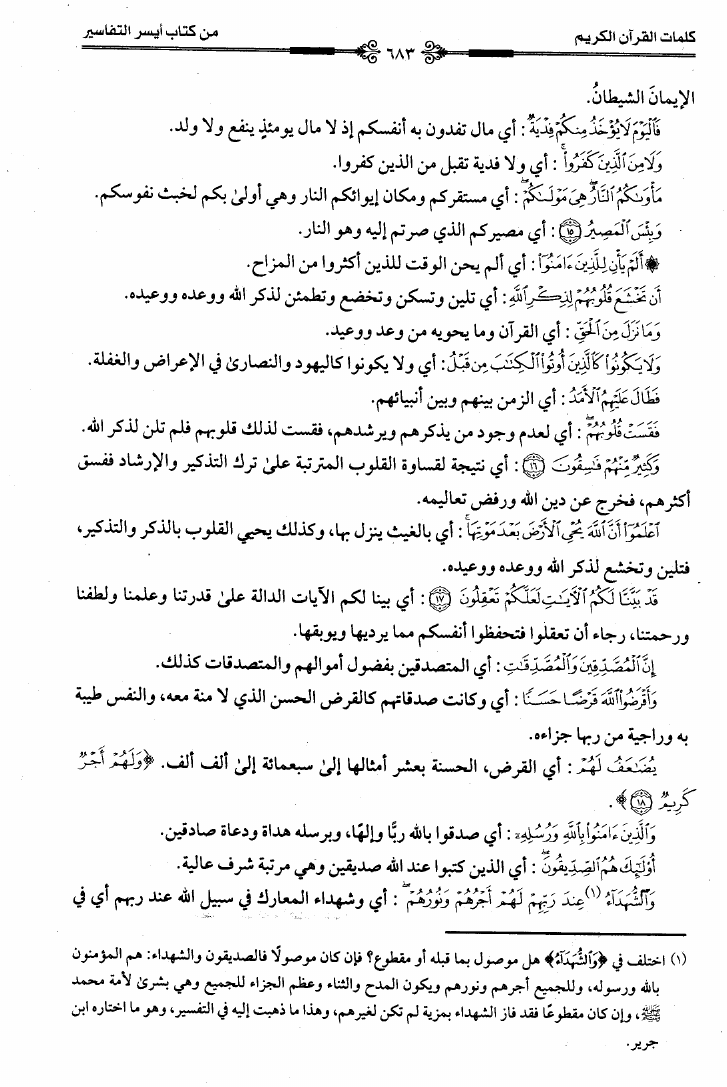 كلمات القرآن الكريم ٦٨٣ من كتاب أيسر التفاسير
الإيمانَ الشيطانُ.
فَٱلْيَوْمَ لَا يُؤْخَذُ مِنكُمْ فِدْيَةٌ: أي مال تفدون به أنفسكم إذ لا مال يومئذٍ ينفع ولا ولد.
وَلَا مِنَ ٱلَّذِينَ كَفَرُوا۟: أي ولا فدية تقبل من الذين كفروا.
مَأْوَىٰكُمُ ٱلنَّارُ هِىَ مَوْلَىٰكُمْ: أي مستقركم ومكان إيوائكم النار وهي أولىٰ بكم لخبث نفوسكم.
وَبِئْسَ ٱلْمَصِيرُ ١٥: أي مصيركم الذي صرتم إليه وهو النار.
۞ أَلَمْ يَأْنِ لِلَّذِينَ ءَامَنُوٓا۟: أي ألم يحن الوقت للذين أكثروا من المزاح.
أَن تَخْشَعَ قُلُوبُهُمْ لِذِكْرِ ٱللَّهِ: أي تلين وتسكن وتخضع وتطمئن لذكر الله ووعده ووعيده.
وَمَا نَزَلَ مِنَ ٱلْحَقِّ: أي القرآن وما يحويه من وعد ووعيد.
وَلَا يَكُونُوا۟ كَٱلَّذِينَ أُوتُوا۟ ٱلْكِتَٰبَ مِن قَبْلُ: أي ولا يكونوا كاليهود والنصارىٰ في الإعراض والغفلة.
فَطَالَ عَلَيْهِمُ ٱلْأَمَدُ: أي الزمن بينهم وبين أنبيائهم.
فَقَسَتْ قُلُوبُهُمْ: أي لعدم وجود من يذكرهم ويرشدهم، فقست لذلك قلوبهم فلم تلن لذكر الله.
وَكَثِيرٌ مِّنْهُمْ فَٰسِقُونَ ١٦: أي نتيجة لقساوة القلوب المترتبة علىٰ ترك التذكير والإرشاد ففسق
أكثرهم، فخرج عن دين الله ورفض تعاليمه.
ٱعْلَمُوٓا۟ أَنَّ ٱللَّهَ يُحْىِ ٱلْأَرْضَ بَعْدَ مَوْتِهَا: أي بالغيث ينزل بها، وكذلك يحيي القلوب بالذكر والتذكير،
فتلين وتخشع لذكر الله ووعده ووعيده.
قَدْ بَيَّنَّا لَكُمُ ٱلْـَٔايَٰتِ لَعَلَّكُمْ تَعْقِلُونَ ١٧: أي بينا لكم الآيات الدالة علىٰ قدرتنا وعلمنا ولطفنا
ورحمتنا، رجاء أن تعقلوا فتحفظوا أنفسكم مما يرديها ويوبقها.
إِنَّ ٱلْمُصَّدِّقِينَ وَٱلْمُصَّدِّقَٰتِ: أي المتصدقين بفضول أموالهم والمتصدقات كذلك.
وَأَقْرَضُوا۟ ٱللَّهَ قَرْضًا حَسَنًا: أي وكانت صدقاتهم كالقرض الحسن الذي لا منة معه، والنفس طيبة
به وراجية من ربها جزاءه.
يُضَٰعَفُ لَهُمْ: أي القرض، الحسنة بعشر أمثالها إلىٰ سبعمائة إلىٰ ألف ألف. ﴿وَلَهُمْ أَجْرٌ
كَرِيمٌ ١٨﴾.
وَٱلَّذِينَ ءَامَنُوا۟ بِٱللَّهِ وَرُسُلِهِۦٓ: أي صدقوا بالله ربًّا وإلهًا، وبرسله هداة ودعاة صادقين.
أُو۟لَٰٓئِكَ هُمُ ٱلصِّدِّيقُونَ: أي الذين كتبوا عند الله صديقين وهي مرتبة شرف عالية.
وَٱلشُّهَدَآءُ (١) عِندَ رَبِّهِمْ لَهُمْ أَجْرُهُمْ وَنُورُهُمْ: أي وشهداء المعارك في سبيل الله عند ربهم أي في
(١) اختلف في ﴿وَٱلشُّهَدَآءُ﴾ هل موصول بما قبله أو مقطوع؟ فإن كان موصولًا فالصديقون والشهداء: هم المؤمنون
بالله ورسوله، وللجميع أجرهم ونورهم ويكون المدح والثناء وعظم الجزاء للجميع وهي بشرىٰ لأمة محمد
ﷺ، وإن كان مقطوعًا فقد فاز الشهداء بمزية لم تكن لغيرهم، وهذا ما ذهبت إليه في التفسير، وهو ما اختاره ابن
جرير.